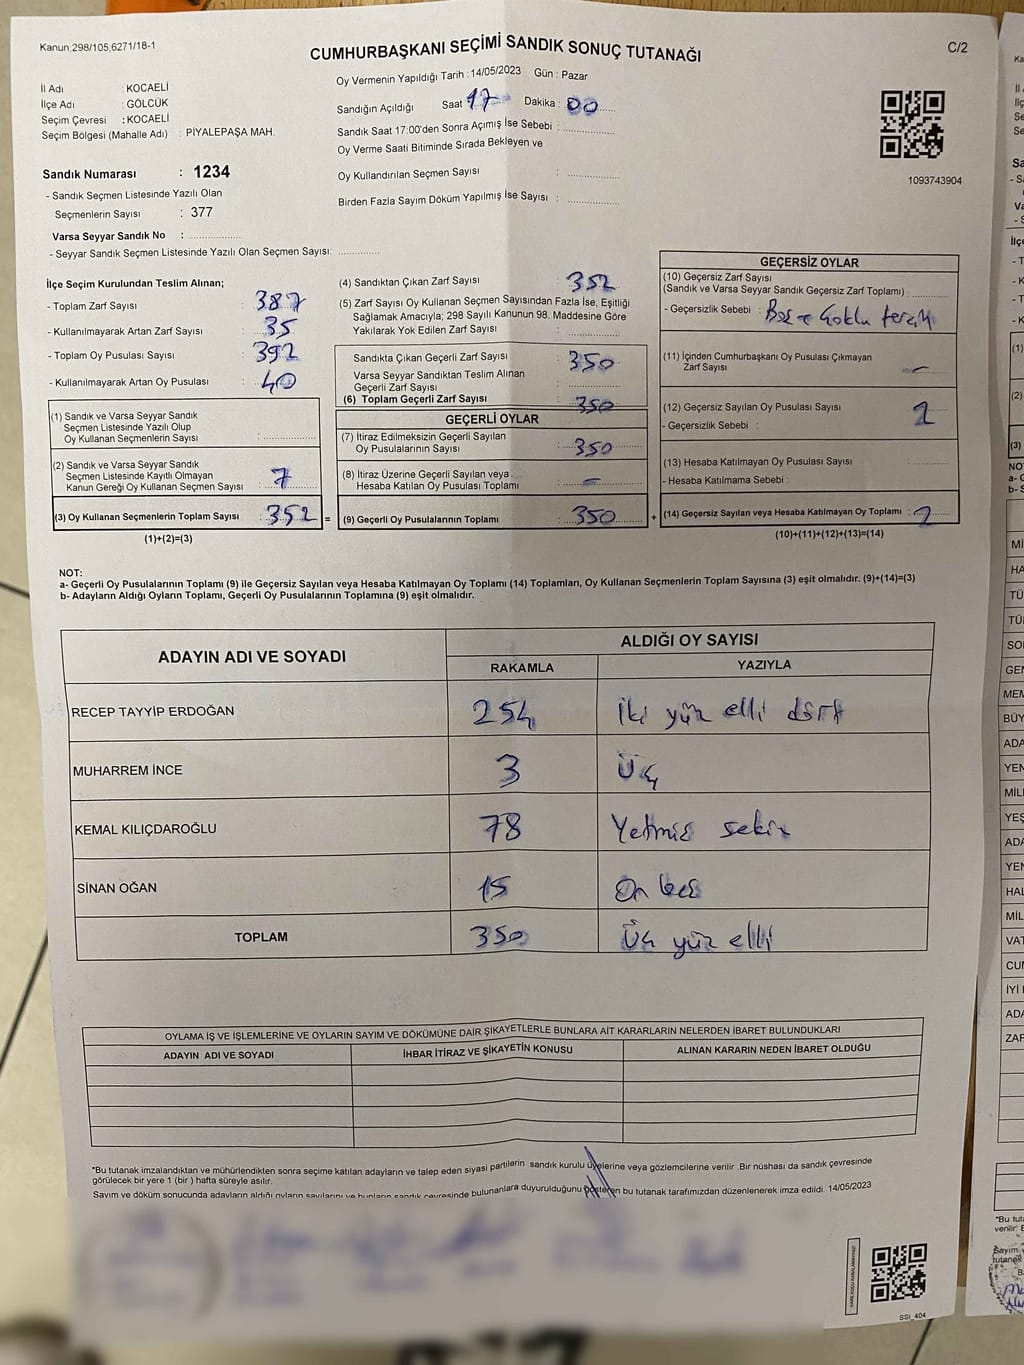 Kanun;298/105,6271/18-1
C/2
CUMHURBAŞKANI SEÇİMİ SANDIK SONUÇ TUTANAĞI
İl Adı : KOCAELİ
İlçe Adı : GÖLCÜK
Seçim Çevresi : KOCAELİ
Seçim Bölgesi (Mahalle Adı) : PİYALEPAŞA MAH.
Oy Vermenin Yapıldığı Tarih : 14/05/2023 Gün : Pazar
Sandığın Açıldığı Saat 17 Dakika : 00
Sandık Saat 17:00'den Sonra Açımış İse Sebebi :
Oy Verme Saati Bitiminde Sırada Bekleyen ve
Oy Kullandırılan Seçmen Sayısı :
Birden Fazla Sayım Döküm Yapılmış İse Sayısı :
1093743904
Sandık Numarası : 1234
- Sandık Seçmen Listesinde Yazılı Olan
Seçmenlerin Sayısı : 377
Varsa Seyyar Sandık No :
- Seyyar Sandık Seçmen Listesinde Yazılı Olan Seçmen Sayısı:
İlçe Seçim Kurulundan Teslim Alınan;
- Toplam Zarf Sayısı : 387
- Kullanılmayarak Artan Zarf Sayısı : 35
- Toplam Oy Pusulası Sayısı : 392
- Kullanılmayarak Artan Oy Pusulası : 40
(1) Sandık ve Varsa Seyyar Sandık
Seçmen Listesinde Yazılı Olup
Oy Kullanan Seçmenlerin Sayısı :
(2) Sandık ve Varsa Seyyar Sandık
Seçmen Listesinde Kayıtlı Olmayan
Kanun Gereği Oy Kullanan Seçmen Sayısı : 7
(3) Oy Kullanan Seçmenlerin Toplam Sayısı : 352 =
(1)+(2)=(3)
(4) Sandıktan Çıkan Zarf Sayısı : 352
(5) Zarf Sayısı Oy Kullanan Seçmen Sayısından Fazla İse, Eşitliği
Sağlamak Amacıyla; 298 Sayılı Kanunun 98. Maddesine Göre
Yakılarak Yok Edilen Zarf Sayısı :
Sandıkta Çıkan Geçerli Zarf Sayısı : 350
Varsa Seyyar Sandıktan Teslim Alınan
Geçerli Zarf Sayısı :
(6) Toplam Geçerli Zarf Sayısı : 350
GEÇERLİ OYLAR
(7) İtiraz Edilmeksizin Geçerli Sayılan
Oy Pusulalarının Sayısı : 350
(8) İtiraz Üzerine Geçerli Sayılan veya
Hesaba Katılan Oy Pusulası Toplamı : -
(9) Geçerli Oy Pusulalarının Toplamı : 350 +
GEÇERSİZ OYLAR
(10) Geçersiz Zarf Sayısı
(Sandık ve Varsa Seyyar Sandık Geçersiz Zarf Toplamı) :
- Geçersizlik Sebebi : Boş + Çoklu tercih
(11) İçinden Cumhurbaşkanı Oy Pusulası Çıkmayan
Zarf Sayısı : -
(12) Geçersiz Sayılan Oy Pusulası Sayısı : 2
- Geçersizlik Sebebi :
(13) Hesaba Katılmayan Oy Pusulası Sayısı :
- Hesaba Katılmama Sebebi :
(14) Geçersiz Sayılan veya Hesaba Katılmayan Oy Toplamı : 2
(10)+(11)+(12)+(13)=(14)
NOT:
a- Geçerli Oy Pusulalarının Toplamı (9) ile Geçersiz Sayılan veya Hesaba Katılmayan Oy Toplamı (14) Toplamları, Oy Kullanan Seçmenlerin Toplam Sayısına (3) eşit olmalıdır. (9)+(14)=(3)
b- Adayların Aldığı Oyların Toplamı, Geçerli Oy Pusulalarının Toplamına (9) eşit olmalıdır.
ADAYIN ADI VE SOYADI
ALDIĞI OY SAYISI
RAKAMLA YAZIYLA
RECEP TAYYİP ERDOĞAN 254 İki yüz elli dört
MUHARREM İNCE 3 Üç
KEMAL KILIÇDAROĞLU 78 Yetmiş sekiz
SİNAN OĞAN 15 On beş
TOPLAM 350 Üç yüz elli
OYLAMA İŞ VE İŞLEMLERİNE VE OYLARIN SAYIM VE DÖKÜMÜNE DAİR ŞİKAYETLERLE BUNLARA AİT KARARLARIN NELERDEN İBARET BULUNDUKLARI
ADAYIN ADI VE SOYADI İHBAR İTİRAZ VE ŞİKAYETİN KONUSU ALINAN KARARIN NEDEN İBARET OLDUĞU
*Bu tutanak imzalandıktan ve mühürlendikten sonra seçime katılan adayların ve talep eden siyasi partilerin sandık kurulu üyelerine veya gözlemcilerine verilir .Bir nüshası da sandık çevresinde
görülecek bir yere 1 (bir ) hafta süreyle asılır.
Sayım ve döküm sonucunda adayların aldığı oyların sayılarını ve bunların sandık çevresinde bulunanlara duyurulduğunu gösteren bu tutanak tarafımızdan düzenlenerek imza edildi. 14/05/2023
SSI_404